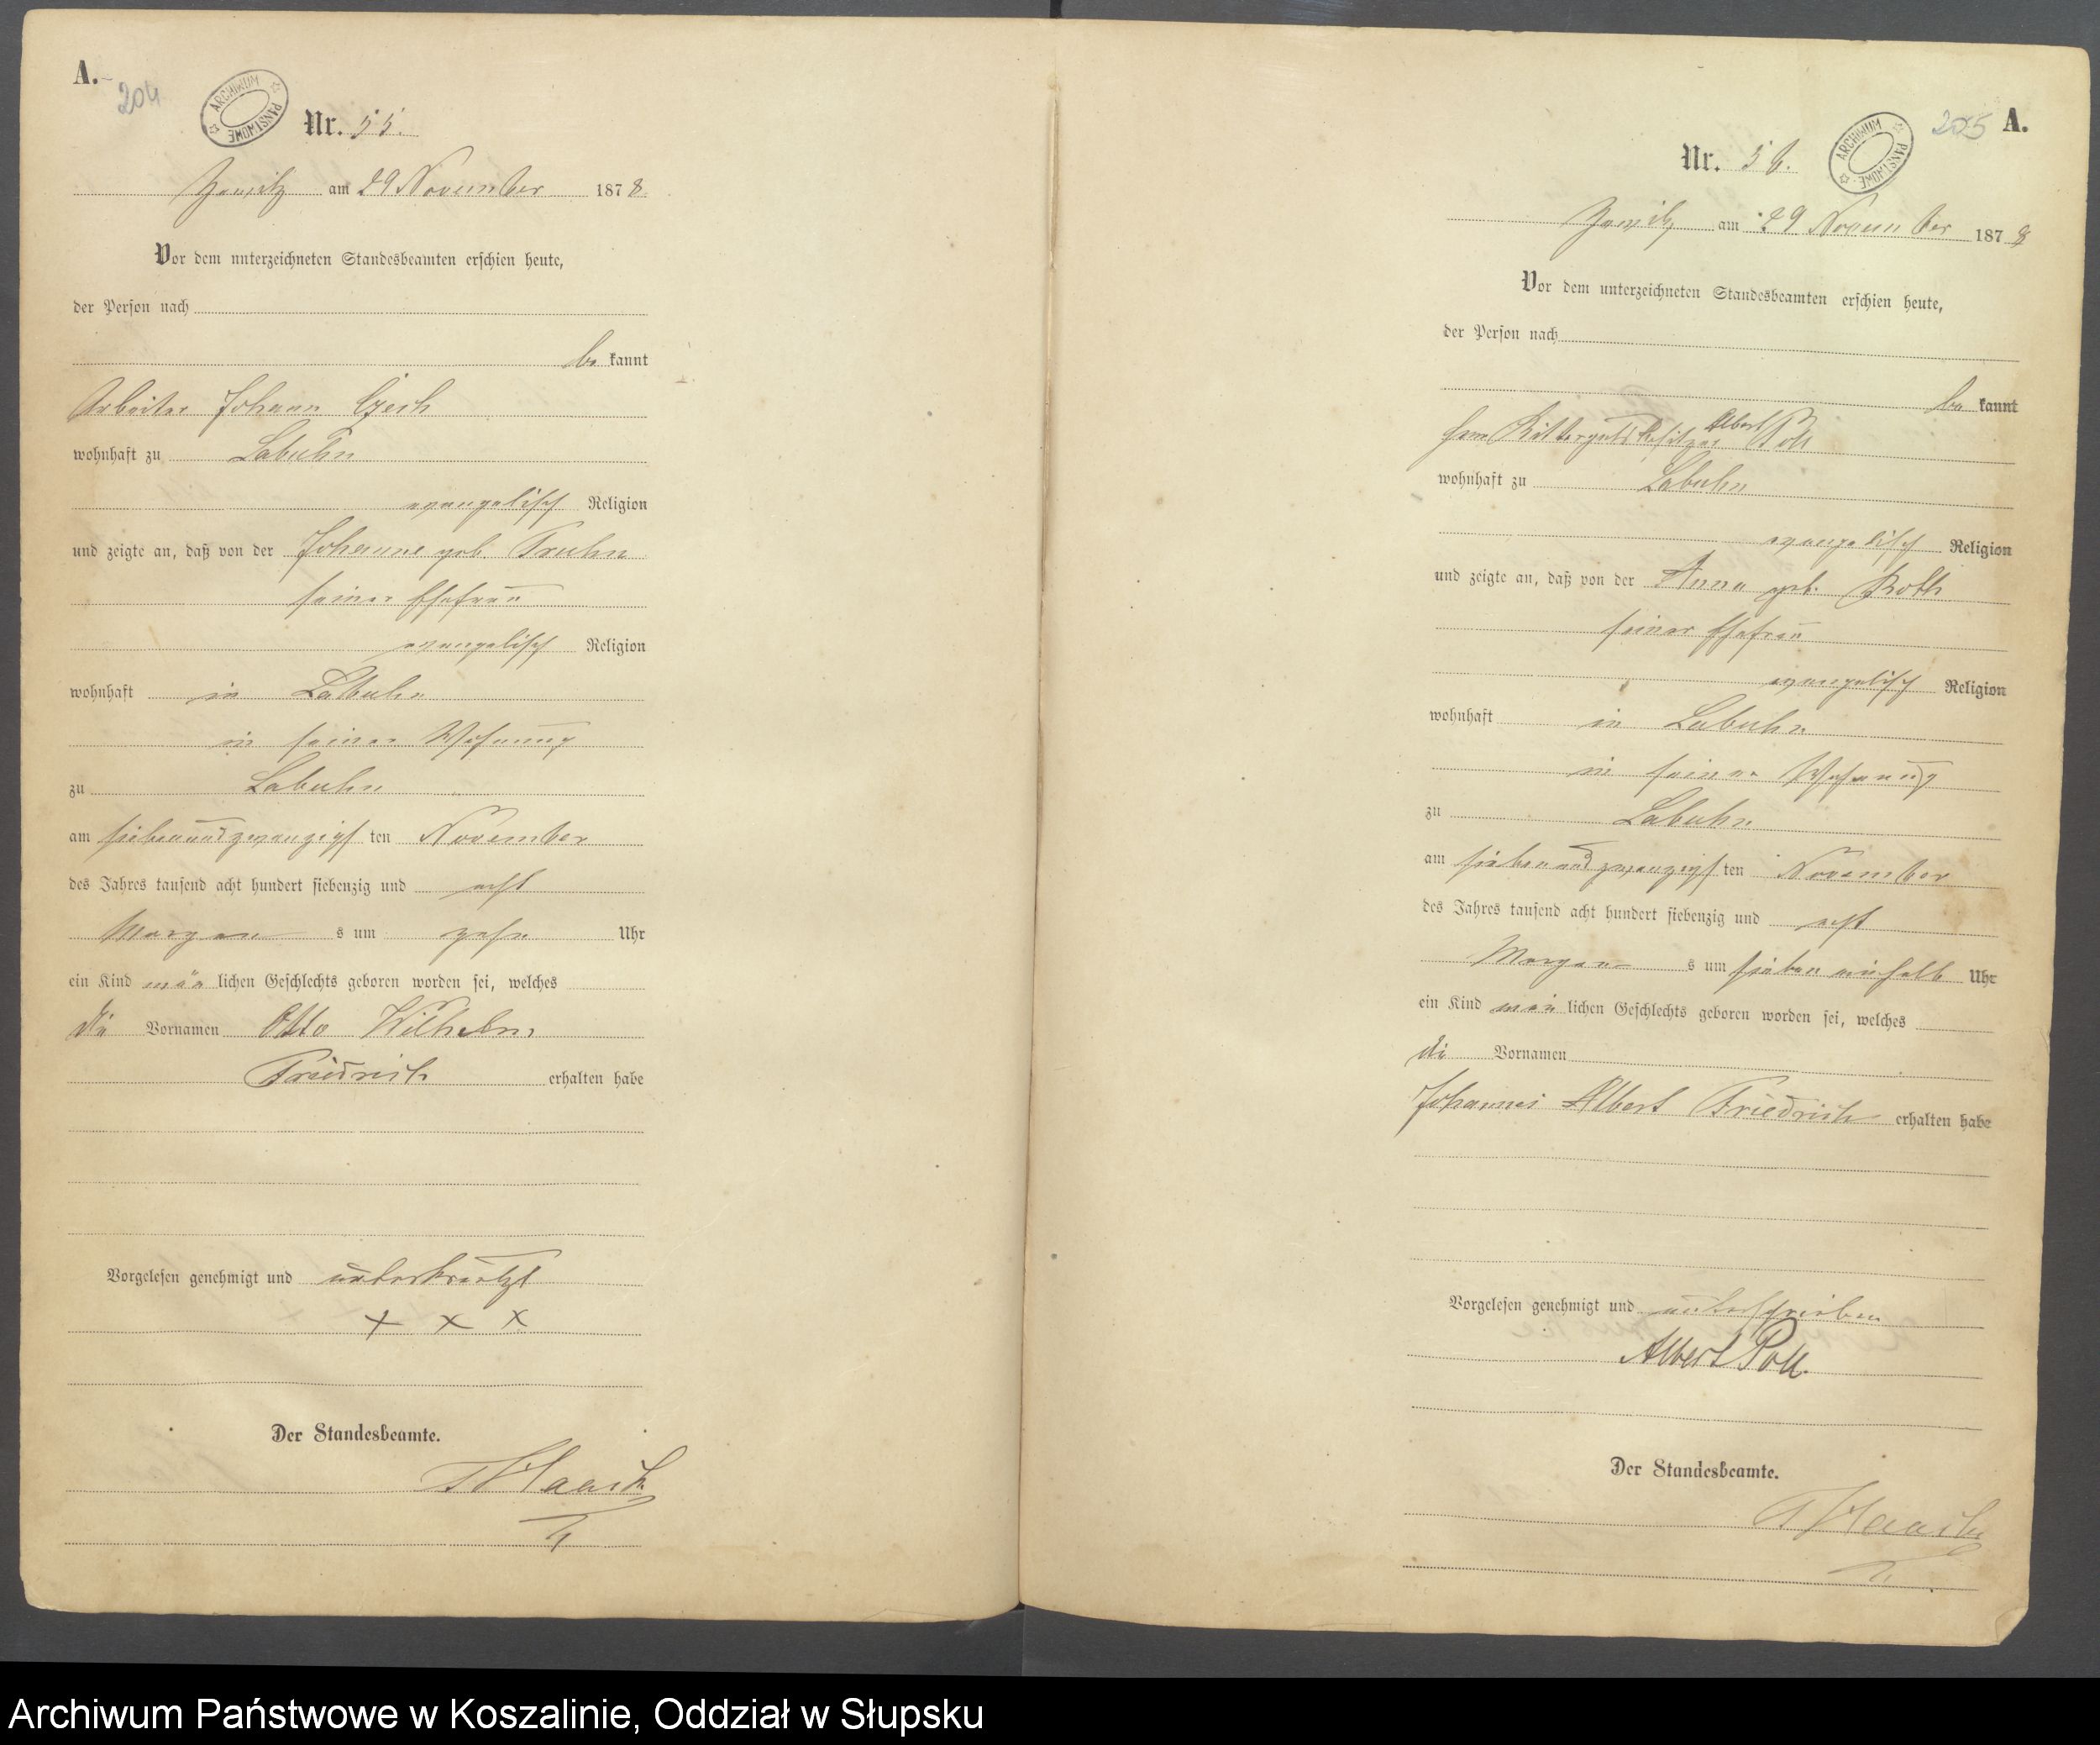 A.
204
ARCHIWUM PAŃSTWOWE
Nr. 55.
am 29 November 1878
Vor dem unterzeichneten Standesbeamten erschien heute,
der Person nach
be kannt
Arbeiter Johann Czech
wohnhaft zu Labuhn
evangelisch Religion
und zeigte an, daß von der Johanne geb. Truhn
seiner Ehefrau
evangelisch Religion
wohnhaft in Labuhn
in seiner Wohnung
zu Labuhn
am siebenundzwanzigs ten November
des Jahres tausend acht hundert siebenzig und acht
Morgen s um zehn Uhr
ein Kind män lichen Geschlechts geboren worden sei, welches
die Vornamen Otto Wilhelm
Friedrich erhalten habe
Vorgelesen genehmigt und unterkreuzt
+ x x
Der Standesbeamte.
205 A.
ARCHIWUM PAŃSTWOWE
Nr. 56.
am 29 November 1878
Vor dem unterzeichneten Standesbeamten erschien heute,
der Person nach
be kannt
Herr Rittergutsbesitzer Albert Poll
wohnhaft zu Labuhn
evangelisch Religion
und zeigte an, daß von der Anna geb. Roth
seiner Ehefrau
evangelisch Religion
wohnhaft in Labuhn
in seiner Wohnung
zu Labuhn
am siebenundzwanzigs ten November
des Jahres tausend acht hundert siebenzig und acht
Morgen s um sieben einhalb Uhr
ein Kind män lichen Geschlechts geboren worden sei, welches
die Vornamen
Johannes Albert Friedrich erhalten habe
Vorgelesen genehmigt und unterschrieben
Albert Poll.
Der Standesbeamte.
Archiwum Państwowe w Koszalinie, Oddział w Słupsku